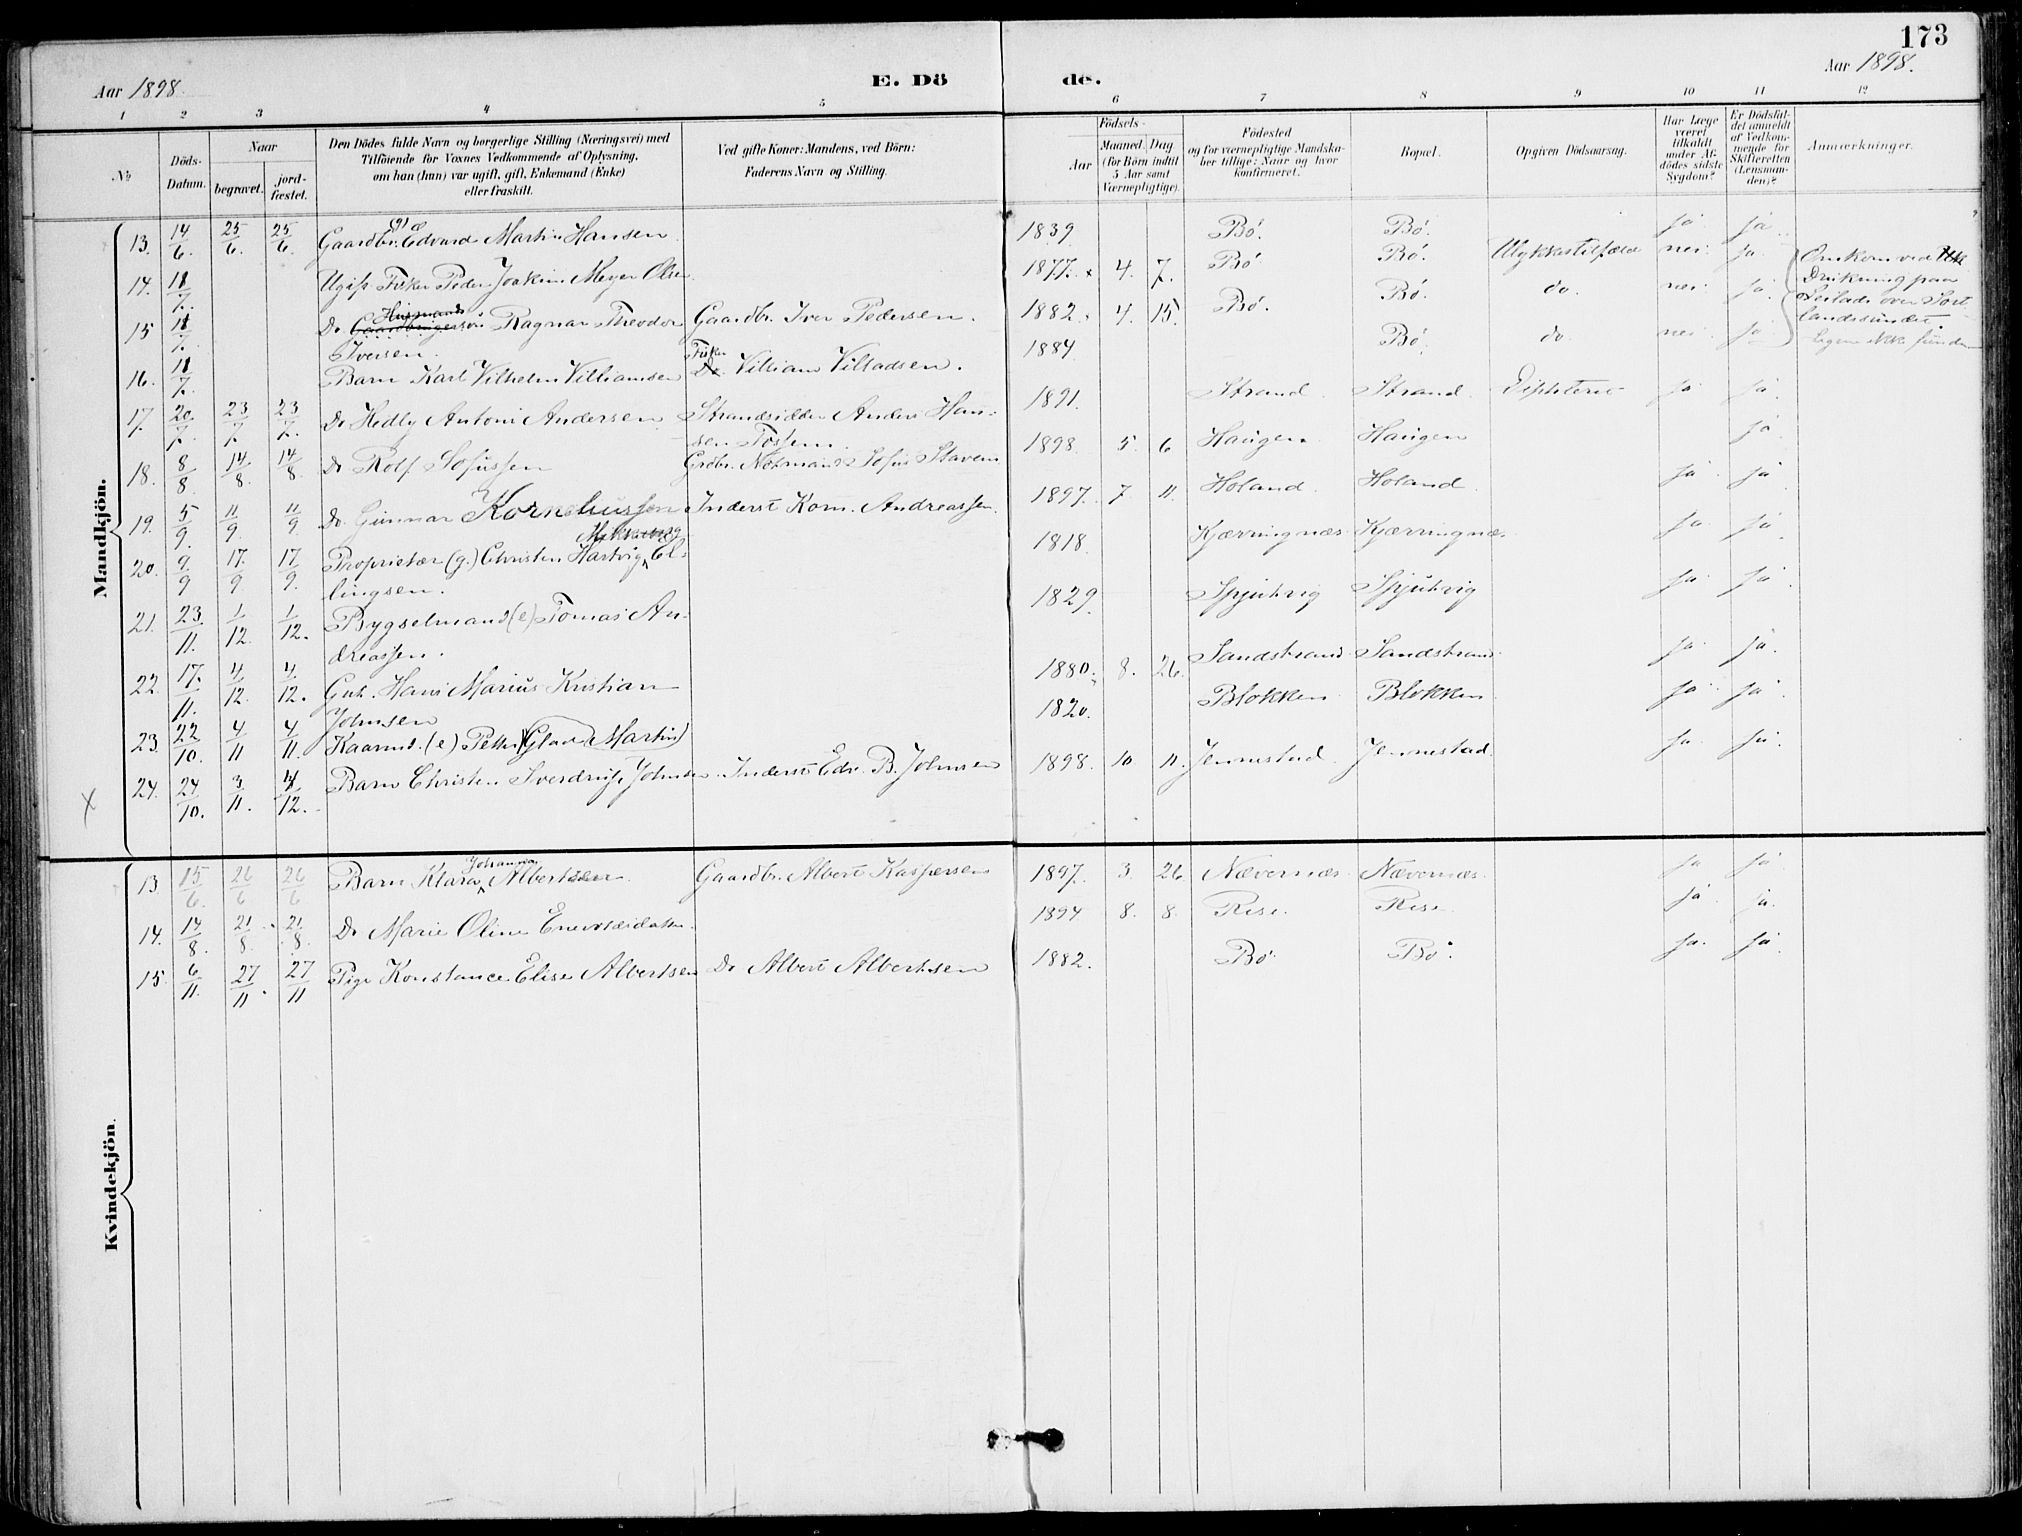 173
Aar 1898.
E. Döde.
Aar 1898.
1 2 3 4 5 6 7 8 9 10 11 12
No
Döds-Datum.
Naar
begravet.
jordfæstet.
Den Dödes fulde Navn og borgerlige Stilling (Næringsvei) med
Tilföiende for Voxnes Vedkommende af Oplysning,
om han (hun) var ugift, gift, Enkemand (Enke)
eller fraskilt.
Ved gifte Koner: Mandens, ved Börn:
Faderens Navn og Stilling.
Födsels-
Aar
Maaned. Dag
(for Börn indtil
5 Aar samt
Værnepligtige).
Födested
og for værnepligtige Mandskaber tillige: Naar og hvor
konfirmeret.
Bopæl.
Opgiven Dödsaarsag.
Har Læge
været
tilkaldt
under Afdödes sidste
Sygdom?
Er Dödsfaldet anmeldt
af Vedkommende for
Skifteretten
(Lensmanden)?
Anmærkninger.
Mandkjön.
13. 14/6. 25/6. 25/6. Gaardbr. (g) Edvard Martin Hansen 1839 Bö. Bö. ja ja
14. 11/7. Ugift Fisker Peder Joakim Meyer Olsen 1877. 4. 7. Bö. Bö. Ulykkestilfælde nei. ja. Omkom ved
Drukning paa
Seilads over Sortlandssundet.
Ligene ikke funden
15 11/7. Do Husmands Ragnar Theodor Iversen. Gaardbr. Iver Pedersen. 1882. 4. 15. Bö. Bö. do. nei ja
16. 11/7. Barn Karl Vilhelm Villiamsen Fisker Villiam Villadsen. 1884 Bö. do. nei ja
17. 20/7. 23/7. 23/7. Do Hedly Antoni Andersen Strandsidder Anders Hansen 1891. Strand. Strand. Diphterie ja ja
18. 8/8 14/8. 14/8. Do Rolf Sofussen Grdbr. Sofus 1898. 5 6 Haugen Haugen ja
19. 5/9. 11/9. 11/9 Do. Gunnar Korneliussen Inderst Korn. Andreassen. 1897. 7. 11. Holand. Holand. ja ja
20. 9/9 17./9 17/9. Proprietær (g.) Christen Hartvig Ellingsen. 1818. Kjærringnæs Kjærringnæs ja ja
21. 23/11. 1/12. 1/12. Bygselmand (e) Tomas Andreassen. 1829. Spjutvig Spjutvig ja. ja
22. 17./11. 4/12. 4/12. Gut. Hans Marius Kristian Johnsen 1880. 8. 26. Sandstrand Sandstrand ja. ja.
23. 22/10. 4/11 4/11. Kaarmd. (e) Petter (Glad) Martin) 1820. Blokken Blokken ja ja
24. 24/10. 3/11. 4/12. Barn Christen Sverdrup Johnsen Inderst Edv. B. Johnsen 1898. 10. 11. Jennestad. Jennestad ja. ja.
X
Kvindekjön.
13 15/6. 26/6 26/6 Barn Klara Johanna Albertsen Gaardbr. Albert Kaspersen 1897. 3. 26 Nævernæs Nævernæs. ja ja
14. 14/8. 21/8. 21/8. Do Marie Oline 1894 8. 8. Rise. Rise ja ja.
15. 6/11. 27/11. 27/11 Pige Konstance Elise Albertsen Do Albert Albertsen 1882. Bö. Bö. ja. ja